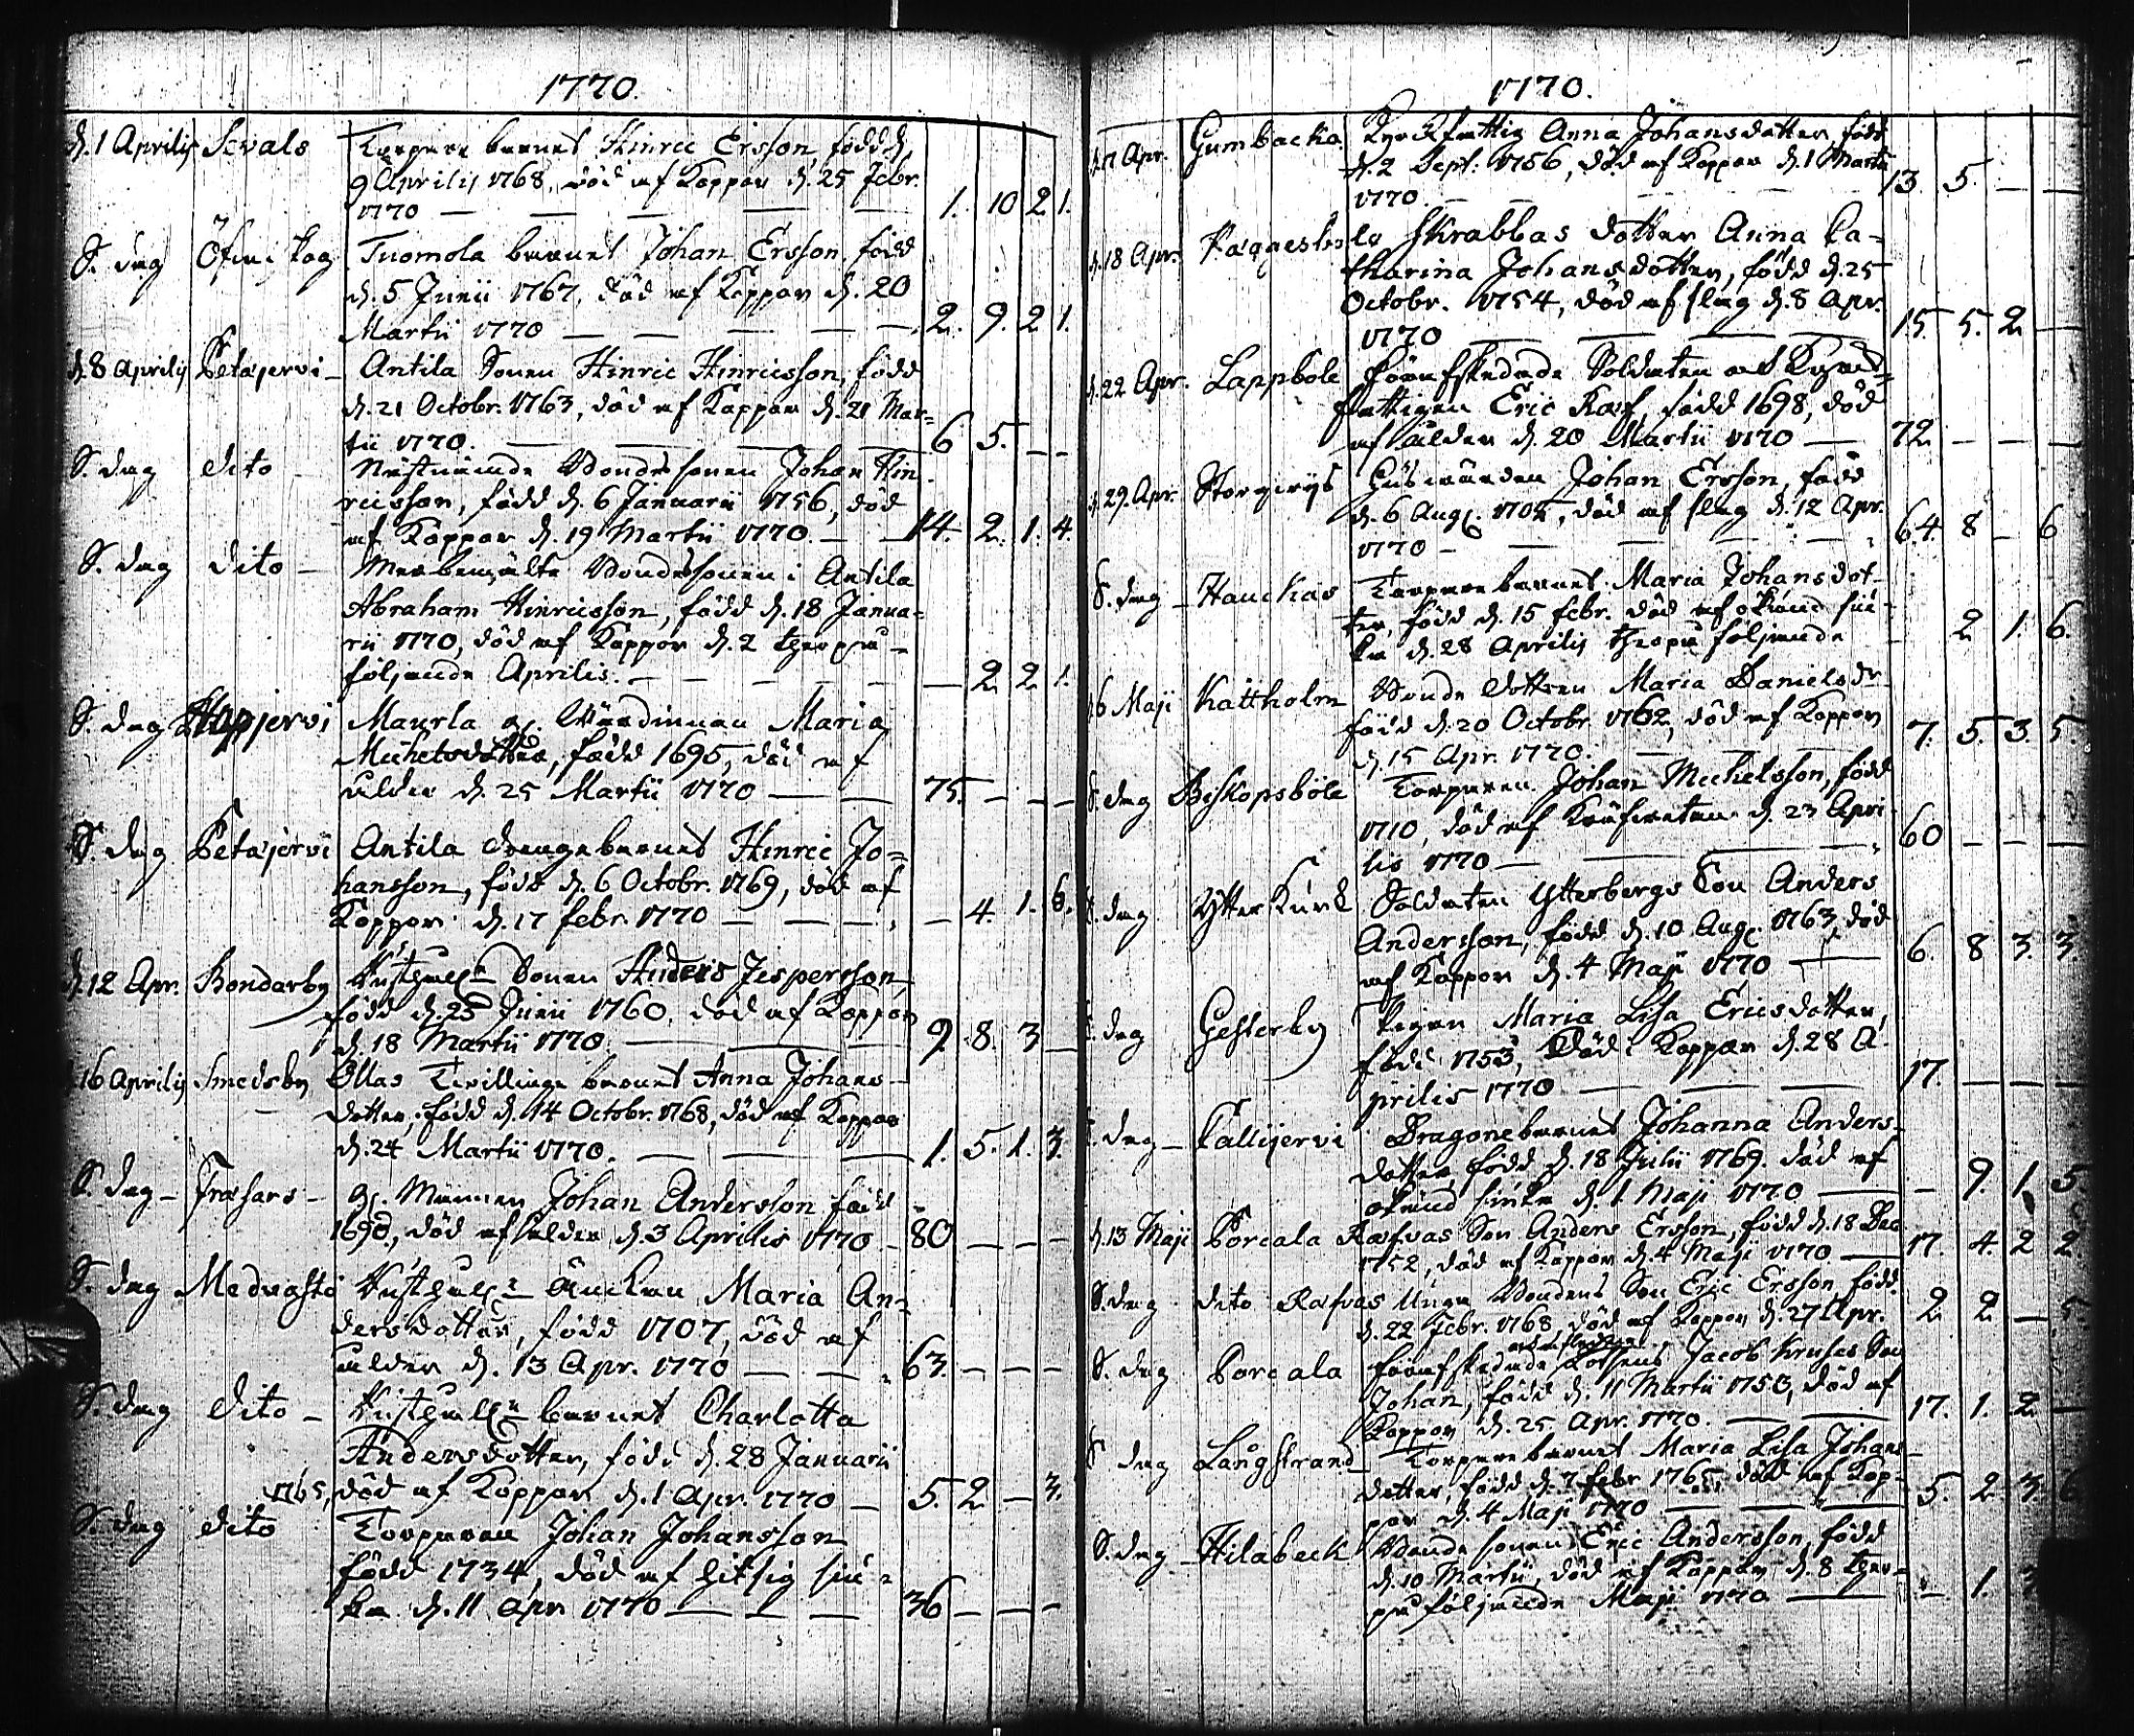 1770.
d. 1 Aprilis Sevals Torpare barnet Hinric Ersson, född d.
9 Aprilis 1768, död af Koppor d. 25 Febr.
1770 — — — — — 1. 10 2 1.
S. dag Öfvi tag Tuomola barnet Johan Ersson, född
d. 5 Junii 1767, död af Koppor d. 20
Martii 1770 — — — — — 2. 9. 2 1.
d. 8 Aprilis Petajervi — Antila Sonen Hinric Hinricsson, född
d. 21 Octobr. 1763, död af Koppor d. 21 Mar=
tii 1770. — — — 6 5. — —
S. dag dito — Nästnämde Bondesonen Johan Hin
ricsson, född d. 6 Januarii 1756, död
af Koppor d. 19 Martii 1770. — — 14. 2. 1. 4.
S. dag dito — Merbemälte Bondesonen i Antila
Abraham Hinricsson, född d. 18 Janua=
rii 1770, död af Koppor d. 2 therpå=
följande Aprilis. — — — — — 2. 2. 1.
S. dag Haapjervi Maurla g. Värdinnan Maria
Michelsdotter, född 1695, död af
ålder d. 25 Martii 1770 — — 75. — — —
S. dag Petajervi Antila drängebarnet Hinric Jo=
hansson, född d. 6 Octobr. 1769, död af
Koppor d. 17 febr. 1770 — — — — 4. 1. 6.
d. 12 Apr. Bondarby Sonen Anders Jespersson,
född d. 23 Junii 1760, död af Koppor
d. 18 Martii 1770. — — — 9. 8. 3 —
16 Aprilis Smedsby Ollas Tvillinge barnet Anna Johans
dotter, född d. 14 Octobr. 1768, död af Koppor
d. 24 Martii 1770. — — — 1. 5. 1. 3.
S. dag — Frasars — g. Mannen Johan Andersson född
1690, död af ålder d. 3 Aprilis 1770 — 80 — — —
S. dag Medvasti Änckan Maria An=
dersdotter, född 1707, död af
ålder d. 13 Apr. 1770 — — 63. — — —
S. dag dito — barnet Charlotta
Andersdotter, född d. 28 Januarii
1765, död af Koppor d. 1 Apr. 1770 — 5. 2. — 3.
S. dag dito Torparen Johan Johansson
född 1734, död af hitsig siu=
ka d. 11 Apr 1770 — — — 36 — — —
1770.
d. 17 Apr. Gumbacka Kyrckfattig Anna Johansdotter, född
d. 2 Sept. 1756, död af Koppor d. 1 Martii
1770. — — — 13. 5. — —
d. 18 Apr. Paggesbole Skrabbas dotter Anna Ca=
tharina Johansdotter, född d. 25
Octobr. 1754, död af slag d. 8 Apr.
1770 — — — — 15 5. 2. —
d. 22 Apr. Lappböle förafskedade Soldaten och Kyrck=
fattigen Eric Raf, född 1698, död
af ålder d. 20 Martii 1770 — 72. — — —
d. 29. Apr. Storgiers Husmannen Johan Ersson, född
d. 6 Aug. 1705, död af slag d. 12 Apr.
1770 — — — — 64. 8 — 6
S. dag — Hauckas Torpare barnet Maria Johansdot-
ter, född d. 15 febr. död af okänd siu-
ka d. 28 Aprilis therpå följande — 2 1. 6.
6 Maji Kattholm Bonde dottren Maria Danielsdr.
född d. 20 Octobr. 1762, död af Koppor
d. 15 Apr. 1770. — — 7. 5. 3. 5.
S. dag Biskopsböle Torparen Johan Michelsson, född
1710, död af Kräfvetan d. 23 Apri
lis 1770 — — — 60 — — —
S. dag Ytter Kurk Soldaten Ytterbergs Son Anders
Andersson, född d. 10 Aug. 1763, död
af Koppor d. 4 Maji 1770 — 6. 8 3. 3.
S. dag Gesterby Pigan Maria Lisa Ericsdotter,
född 1753, död i Koppor d. 28 A
prilis 1770 — — — 17. — — —
S. dag — Tallijervi Dragonebarnet Johanna Anders-
dotter, född d. 18 Julii 1769. död af
okänd siuka d. 1 Maji 1770 — — 9. 1. 5.
d. 13 Maji Porcala Rafvas Son Anders Ersson, född d. 18 Dec
1752, död af Koppor d. 4 Maji 1770 — 17. 4. 2 2.
S. dag dito Rafvas Unga Bondens Son Eric Ersson född
d. 22 Febr. 1768, död af Koppor d. 27 Apr. 2. 2 — 5.
S. dag Porcala förafskedade Jacob Kruses Son
Johan, född d. 11 Martii 1753, död af
Koppor d. 25 Apr. 1770. — — 17. 1. 2. —
S dag Långstrand Torpare barnet Maria Lisa Johans
dotter, född d. 7 febr 1765, död af Kop-
por d. 4 Maji 1770 — — — 5. 2 3. 6
S. dag — Hilabeck Bonde sonen Eric Andersson, född
d. 10 Martii, död af Koppor d. 8 ther=
på följande Maji 1770 — — 1.